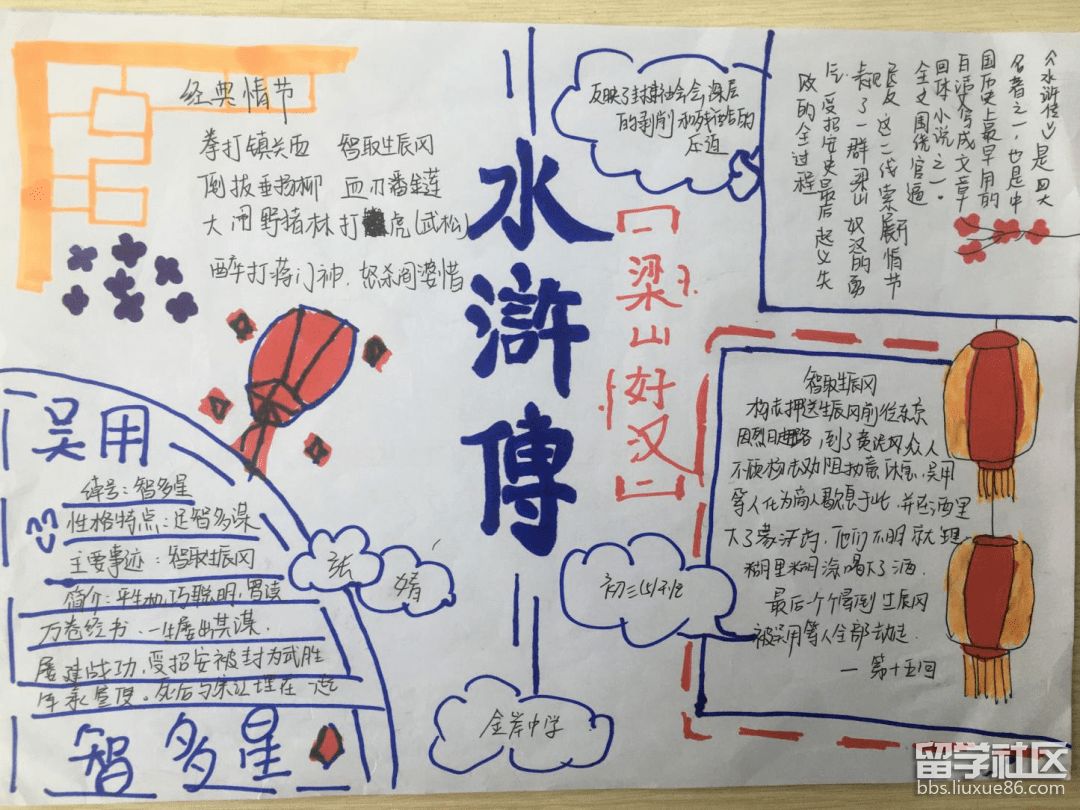 经典情节
拳打镇关西 智取生辰冈
倒拔垂杨柳 血刃潘金莲
大闹野猪林 打虎(武松)
醉打蒋门神 怒杀阎婆惜
水滸傳
【梁山好汉】
反映了封建社会会深层
的剥削和残住后的
压迫
《水浒传》是四大
名著之一,也是中
国历史上最早用的
白话文写成文章
回体小说之一。
全文围绕官逼
民反这一线索展开情节
表现了一群梁山好汉的
受招安史最后起义失
败的全过程
吴用
绰号:智多星
性格特点:足智多谋
主要事迹:智取生辰冈
简介:平生机巧聪明,曾读
万卷经书.一生屡出其谋.
屡建战功,受招安被封为武胜
军承宣使。死后与宋江埋在一起
智多星
张 婧
初三(5)班
金岸中学
智取生辰冈
杨志押送生辰冈前往东京
因烈日,到了黄泥冈众人
不顾杨志劝阻执意休息,吴用
等人化为商人歇息于此,并在酒里
大了蒙汗药,他们不明就理
糊里糊涂喝下了酒.
最后一个个晕倒 生辰冈
被吴用等人全部劫走
— 第十五回
留学社区
bbs.liuxue86.com